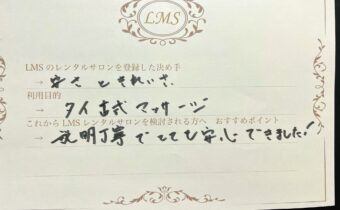 LMS
LMSのレンタルサロンを登録した決め手
→ 安さときれいさ
利用目的
→ タイ古式マッサージ
これからLMSレンタルサロンを検討される方へ おすすめポイント
→ 説明丁寧でとても安心できました!